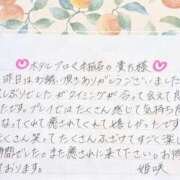 ホテルプロくれ指名の貴方様
昨日はお誘い頂きありがとうございました
しぶりしたがタイミングが合って会え
たです。プレイではたくさん感じて気持ち
なってくれて癒されてくれて嬉しかったです
たくさん笑ってたくさんふざけてすごく楽し
時間でした。また癒されに来て下さい。お待
ております。
姫咲